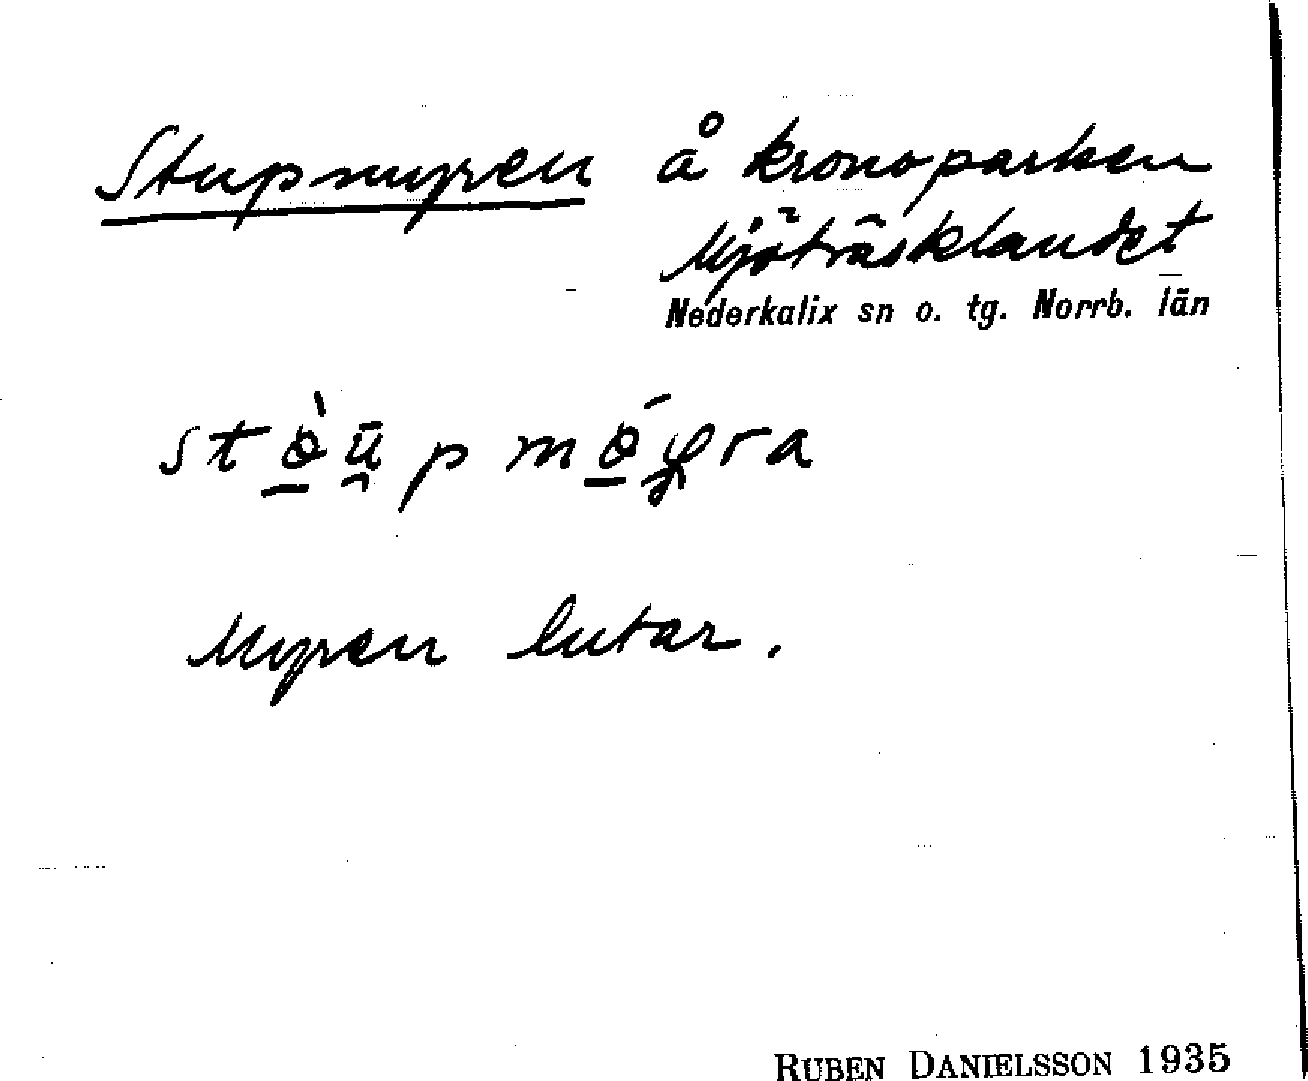 Stupmyren å kronoparken
Mjöträsklandet
Nederkalix sn o. tg. Norrb. län
Myren lutar.
RUBEN DANIELSSON 1935